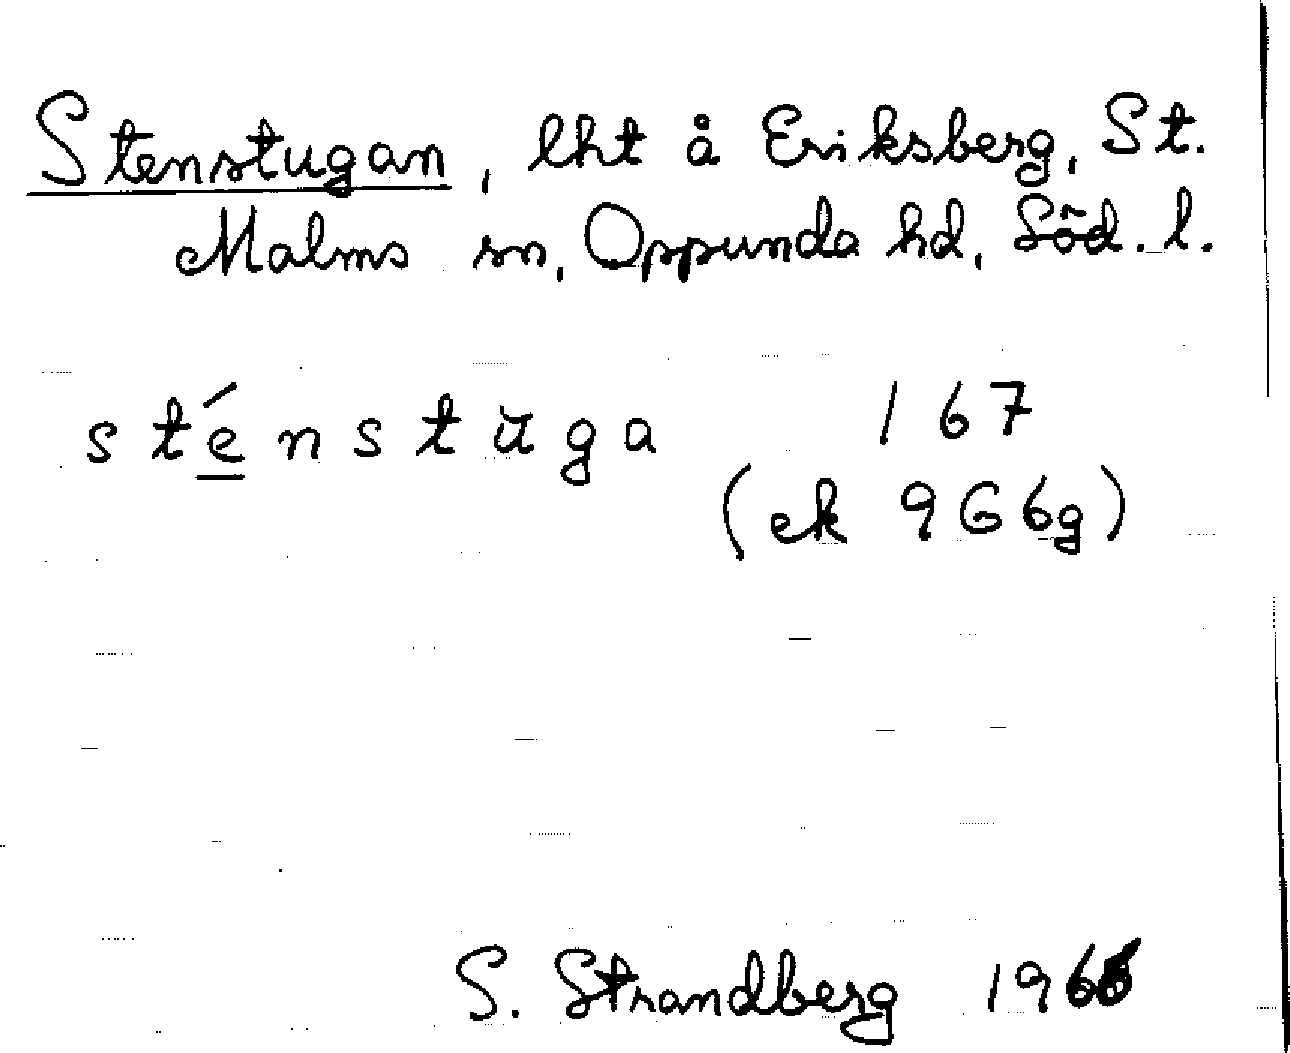 Stenstugan, lht å Eriksberg, St.
Malms sn, Oppunda hd, Söd. l.
sténstŭga 167
(ek 966g)
S. Strandberg 1966